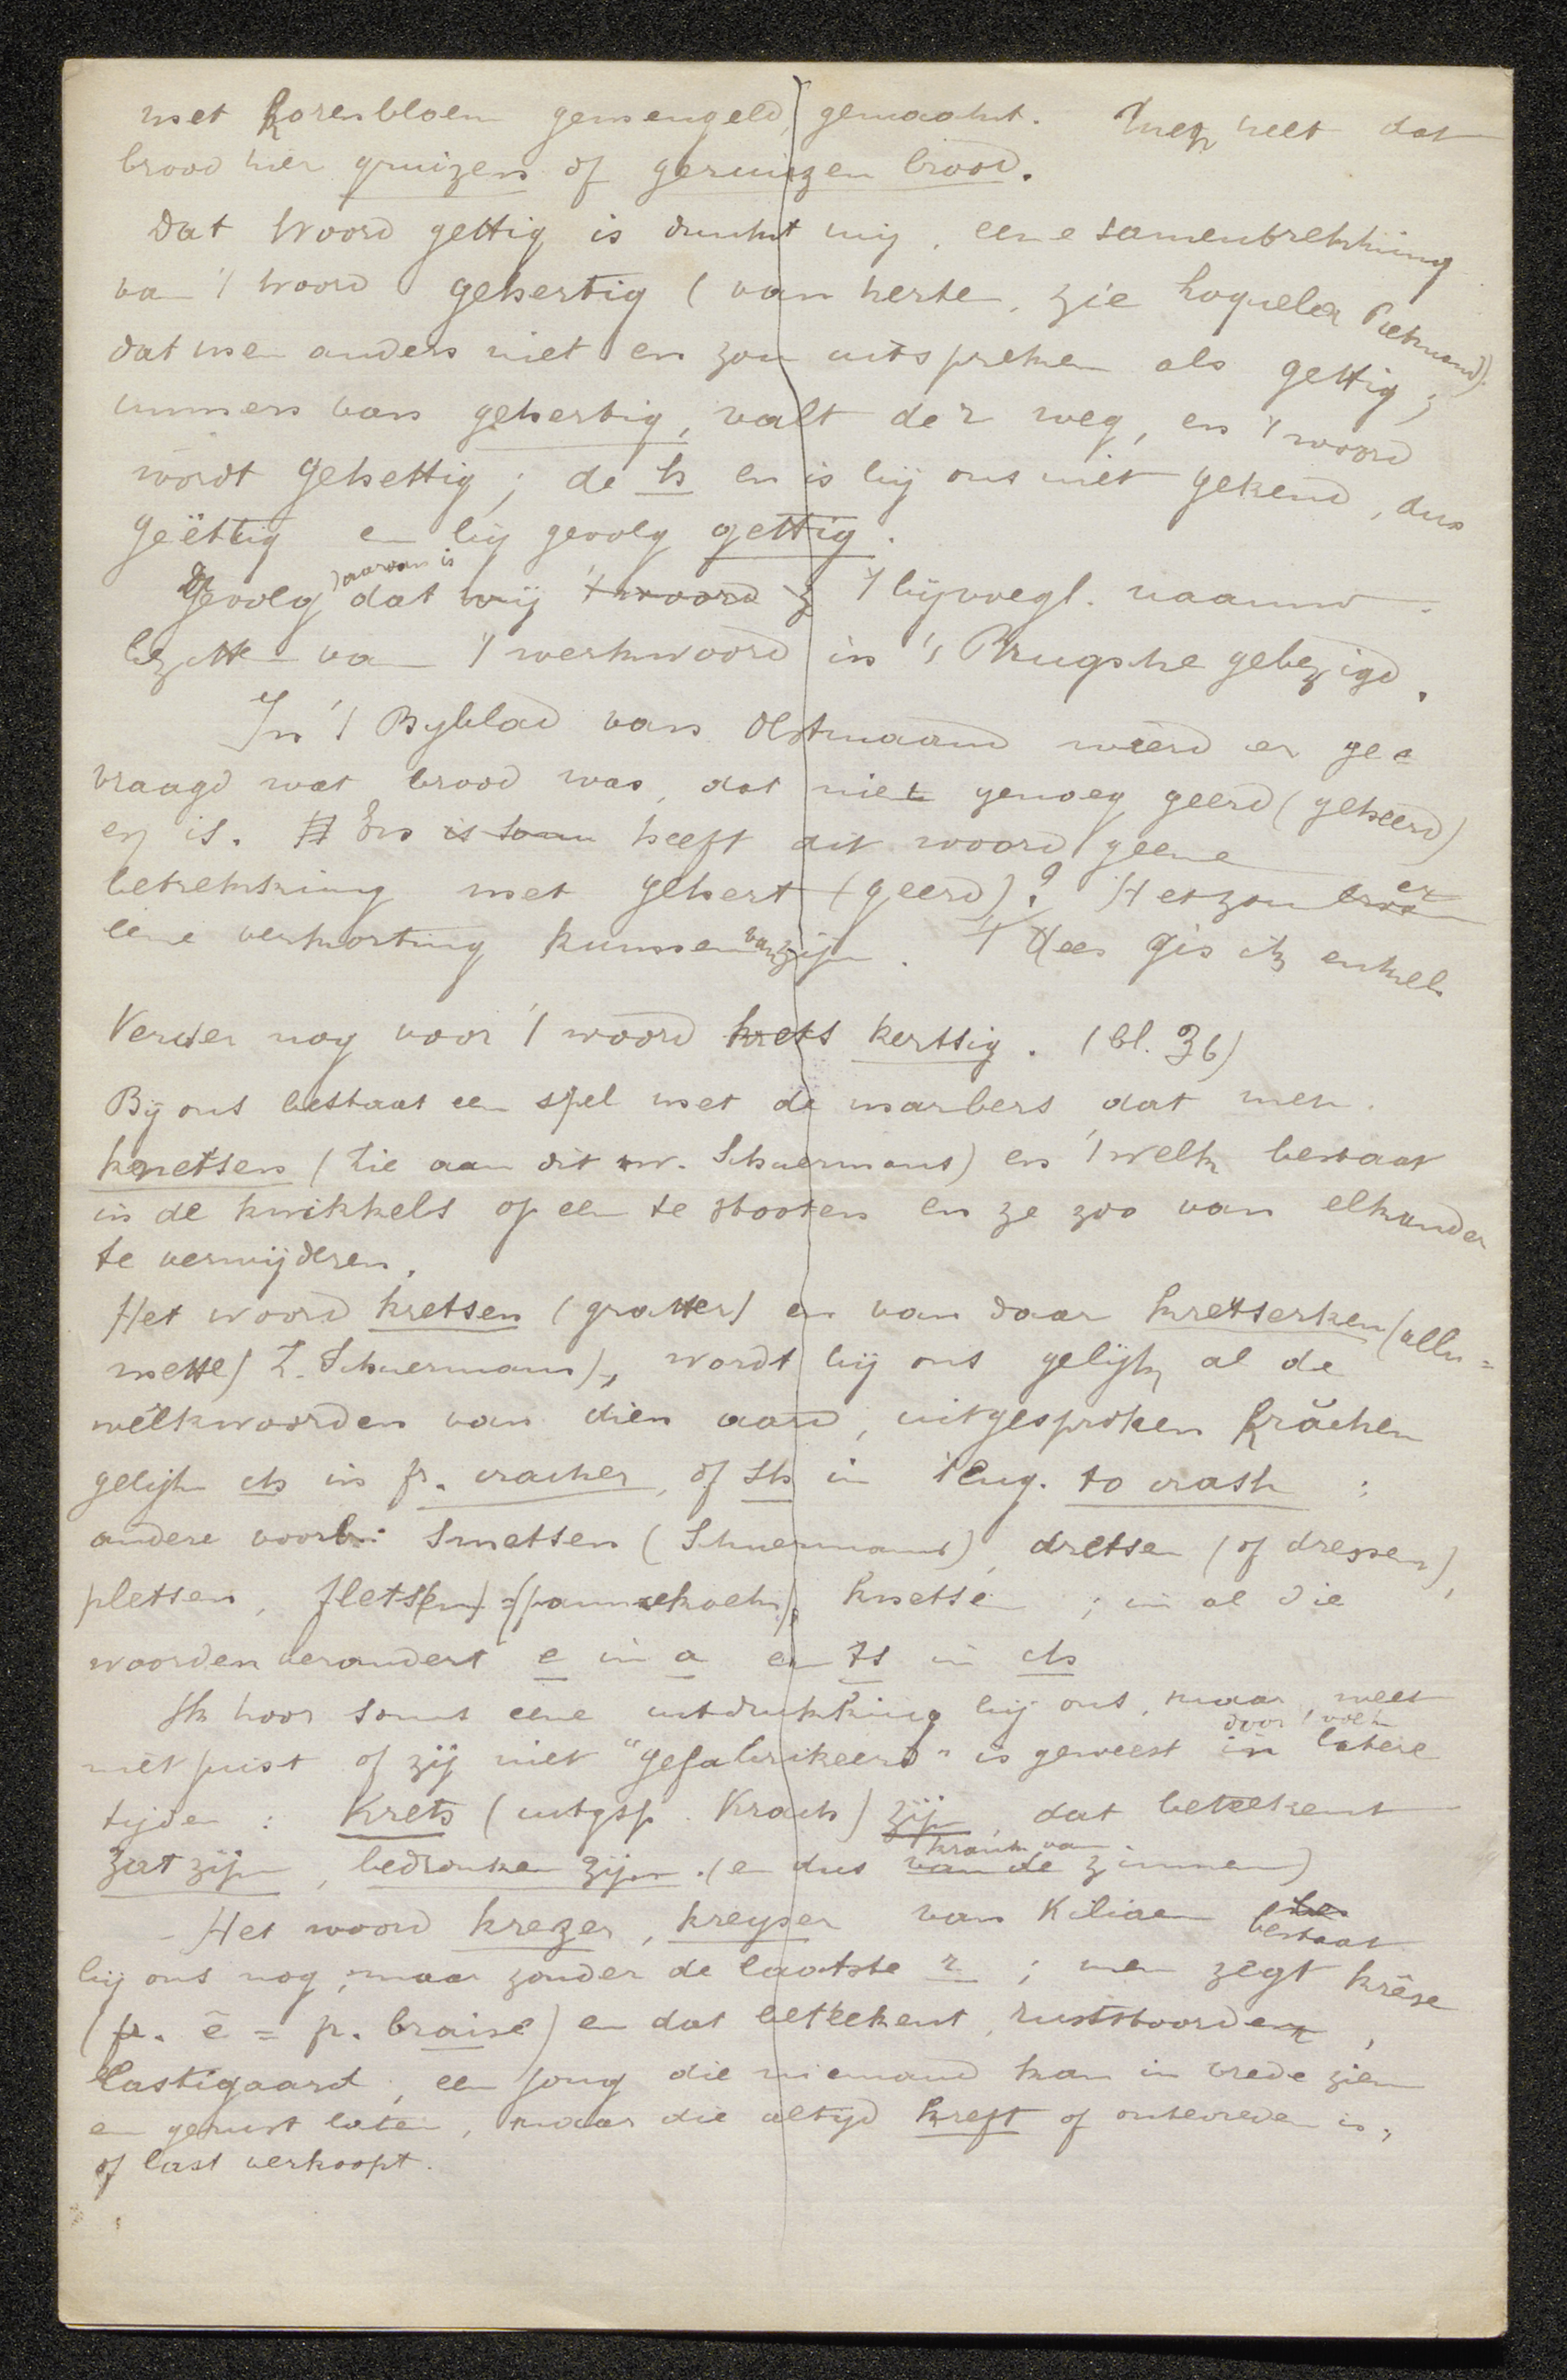 met korenbloem gemengeld, gemaakt. Men heet dat
brood hier gruizen of geruizen brood.
Dat woord gettig is dunkt mij, eene samentrekking
van 't woord gehertig (van herte, zie Loquela Oestmaand).
dat men anders niet en zou uitspreken als gettig;
immers van gehertig, valt de r weg, en 't woord
wordt gehettig; de h en is bij ons niet gekend, dus
geëttig en bij gevolg gettig.
Gevolg daarvan is dat wij 't woord 't bijvoegl. naamw.
bezitten van 't werkwoord in 't Brugsche gebezigd.
In 't Byblad van Oestmaand wierd er ge=
vraagd wat brood was, dat niet genoeg geerd (geheerd)
en is. En is heeft dit woord geene
betrekking met gehert (geerd)? Het zou er
eene verkorting kunnen van zijn. 't Dees gis ik enkel
Verder nog voor 't woord krets kertsig. (bl. 36)
Bij ons bestaat een spel met de marbers dat men
knetsen (Zie aan dit w. Schuermans) en 't welk bestaat
in de knikkels op een te stooten en ze zoo van elkander
te verwijderen.
Het woord kretsen (gratter) en van daar kretserken (allu=
mette) Z. Schuermans), wordt bij ons gelijk al de
welkwoorden van dien aard, uitgesproken krăchen
gelijk ch in fr. cracher, of sh in 't Eng. to crash:
andere voorb: Smetsen (Schuermans), dretsen (of dressen),
pletsen, fletsen (pannekoek), knetsen; in al die
woorden verandert e in a en ts in ch
Ik hoor soms eene uitdrukking bij ons, maar weet
niet juist of zij niet "gefabrikeerd" is geweest door 't volk in latere
tijden: Krets (uitgsp. Krach) zijn, dat beteekent
zat zijn, bedronken zijn. (en dus krank van van de zinnen)
- Het woord krezer, kreyser van Kiliaen bestaat
bij ons nog, maar zonder de laatste r; men zegt krêse
(fr. ê = fr. braise) en dat beteekent, ruststoorder,
lastigaard, een jong die niemand kan in vrede zien
en gerust laten, maar die altijd kreft of ontevreden is,
of last verkoopt.